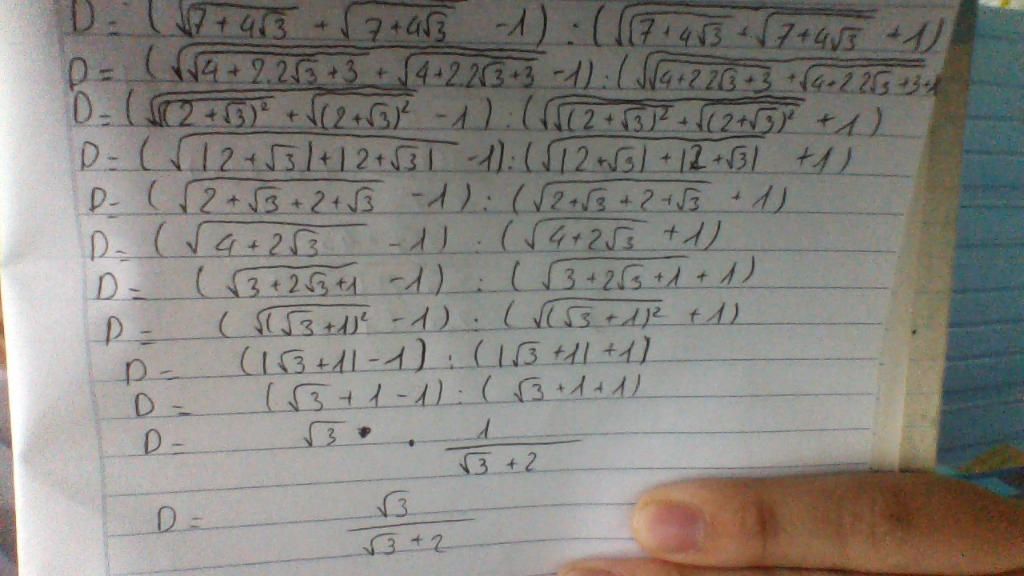 D = (√(√(7+4√3) + √(7+4√3)) -1) : (√(√(7+4√3) + √(7+4√3)) +1)
D = (√(√(4+2.2√3+3) + √(4+2.2√3+3)) -1) : (√(√(4+2.2√3+3) + √(4+2.2√3+3)) +1
D = (√(√((2+√3)²) + √((2+√3)²)) -1) : (√(√((2+√3)²) + √((2+√3)²)) +1)
D = (√(|2+√3|+|2+√3|) -1) : (√(|2+√3|+|2+√3|) +1)
D = (√(2+√3+2+√3) -1) : (√(2+√3+2+√3) +1)
D = (√(4+2√3) -1) : (√(4+2√3) +1)
D = (√(3+2√3+1) -1) : (√(3+2√3+1) +1)
D = (√((√3+1)²) -1) : (√((√3+1)²) +1)
D = (|√3+1|-1) : (|√3+1|+1)
D = (√3+1-1) : (√3+1+1)
D = √3 . 1/(√3+2)
D = √3/(√3+2)